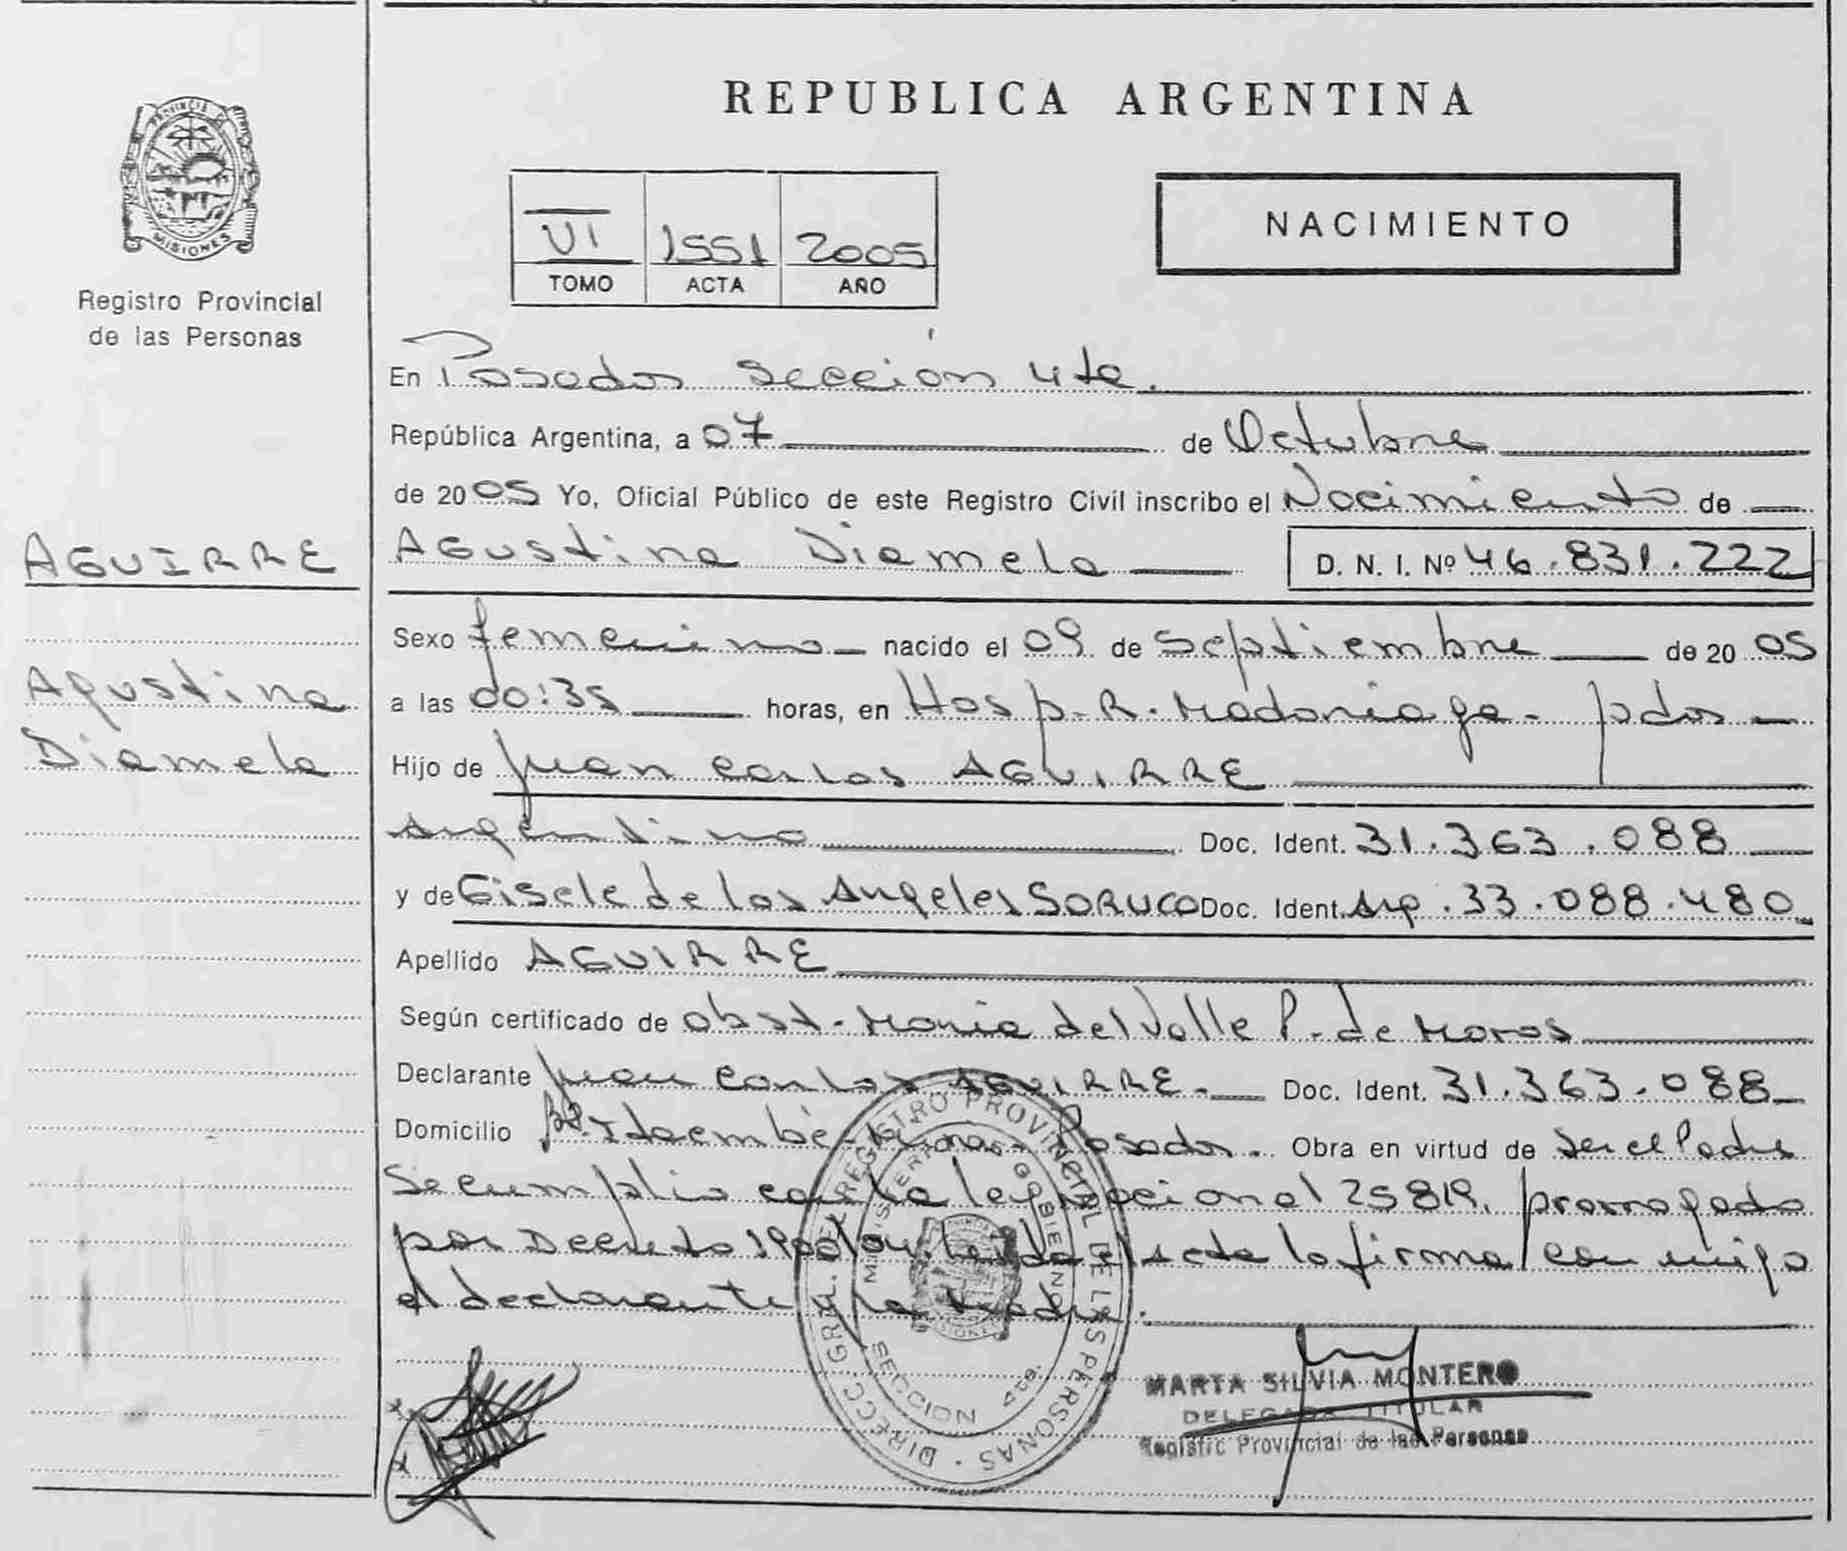 REPUBLICA ARGENTINA
PROVINCIA
MISIONES
Registro Provincial
de las Personas
VI 1551 2005
TOMO ACTA AÑO
NACIMIENTO
En Posadas sección 4ta.
República Argentina, a 07 de Octubre
de 2005 Yo, Oficial Público de este Registro Civil inscribo el Nacimiento de
AGUIRRE
Agustina
Diamela
AGustina Diamela D. N. I. Nº 46.831.222
Sexo femenino nacido el 09 de Septiembre de 2005
a las 00:35 horas, en Hosp. R. Madariaga - pdas
Hijo de Juan Carlos AGUIRRE
Argentino Doc. Ident. 31.363.088
y de Gisele de los Angeles SORUCO Doc. Ident. Arg. 33.088.480
Apellido AGUIRRE
Según certificado de obst. Maria del Valle P. de Moras
Declarante Juan Carlos AGUIRRE. Doc. Ident. 31.363.088
Domicilio Itaembé Posadas. Obra en virtud de ser el Padre
Se cumplio con la ley nacional 25819, prorrogada
por Decreto leida el acta la firma con migo
el declarante y la Madre.
DIRECC. GRAL. DEL REGISTRO PROVINCIAL DE LAS PERSONAS
MINISTERIO DE GOBIERNO
MISIONES
SECCION 4ta.
MARTA SILVIA MONTERO
DELEGADA TITULAR
Registro Provincial de las Personas